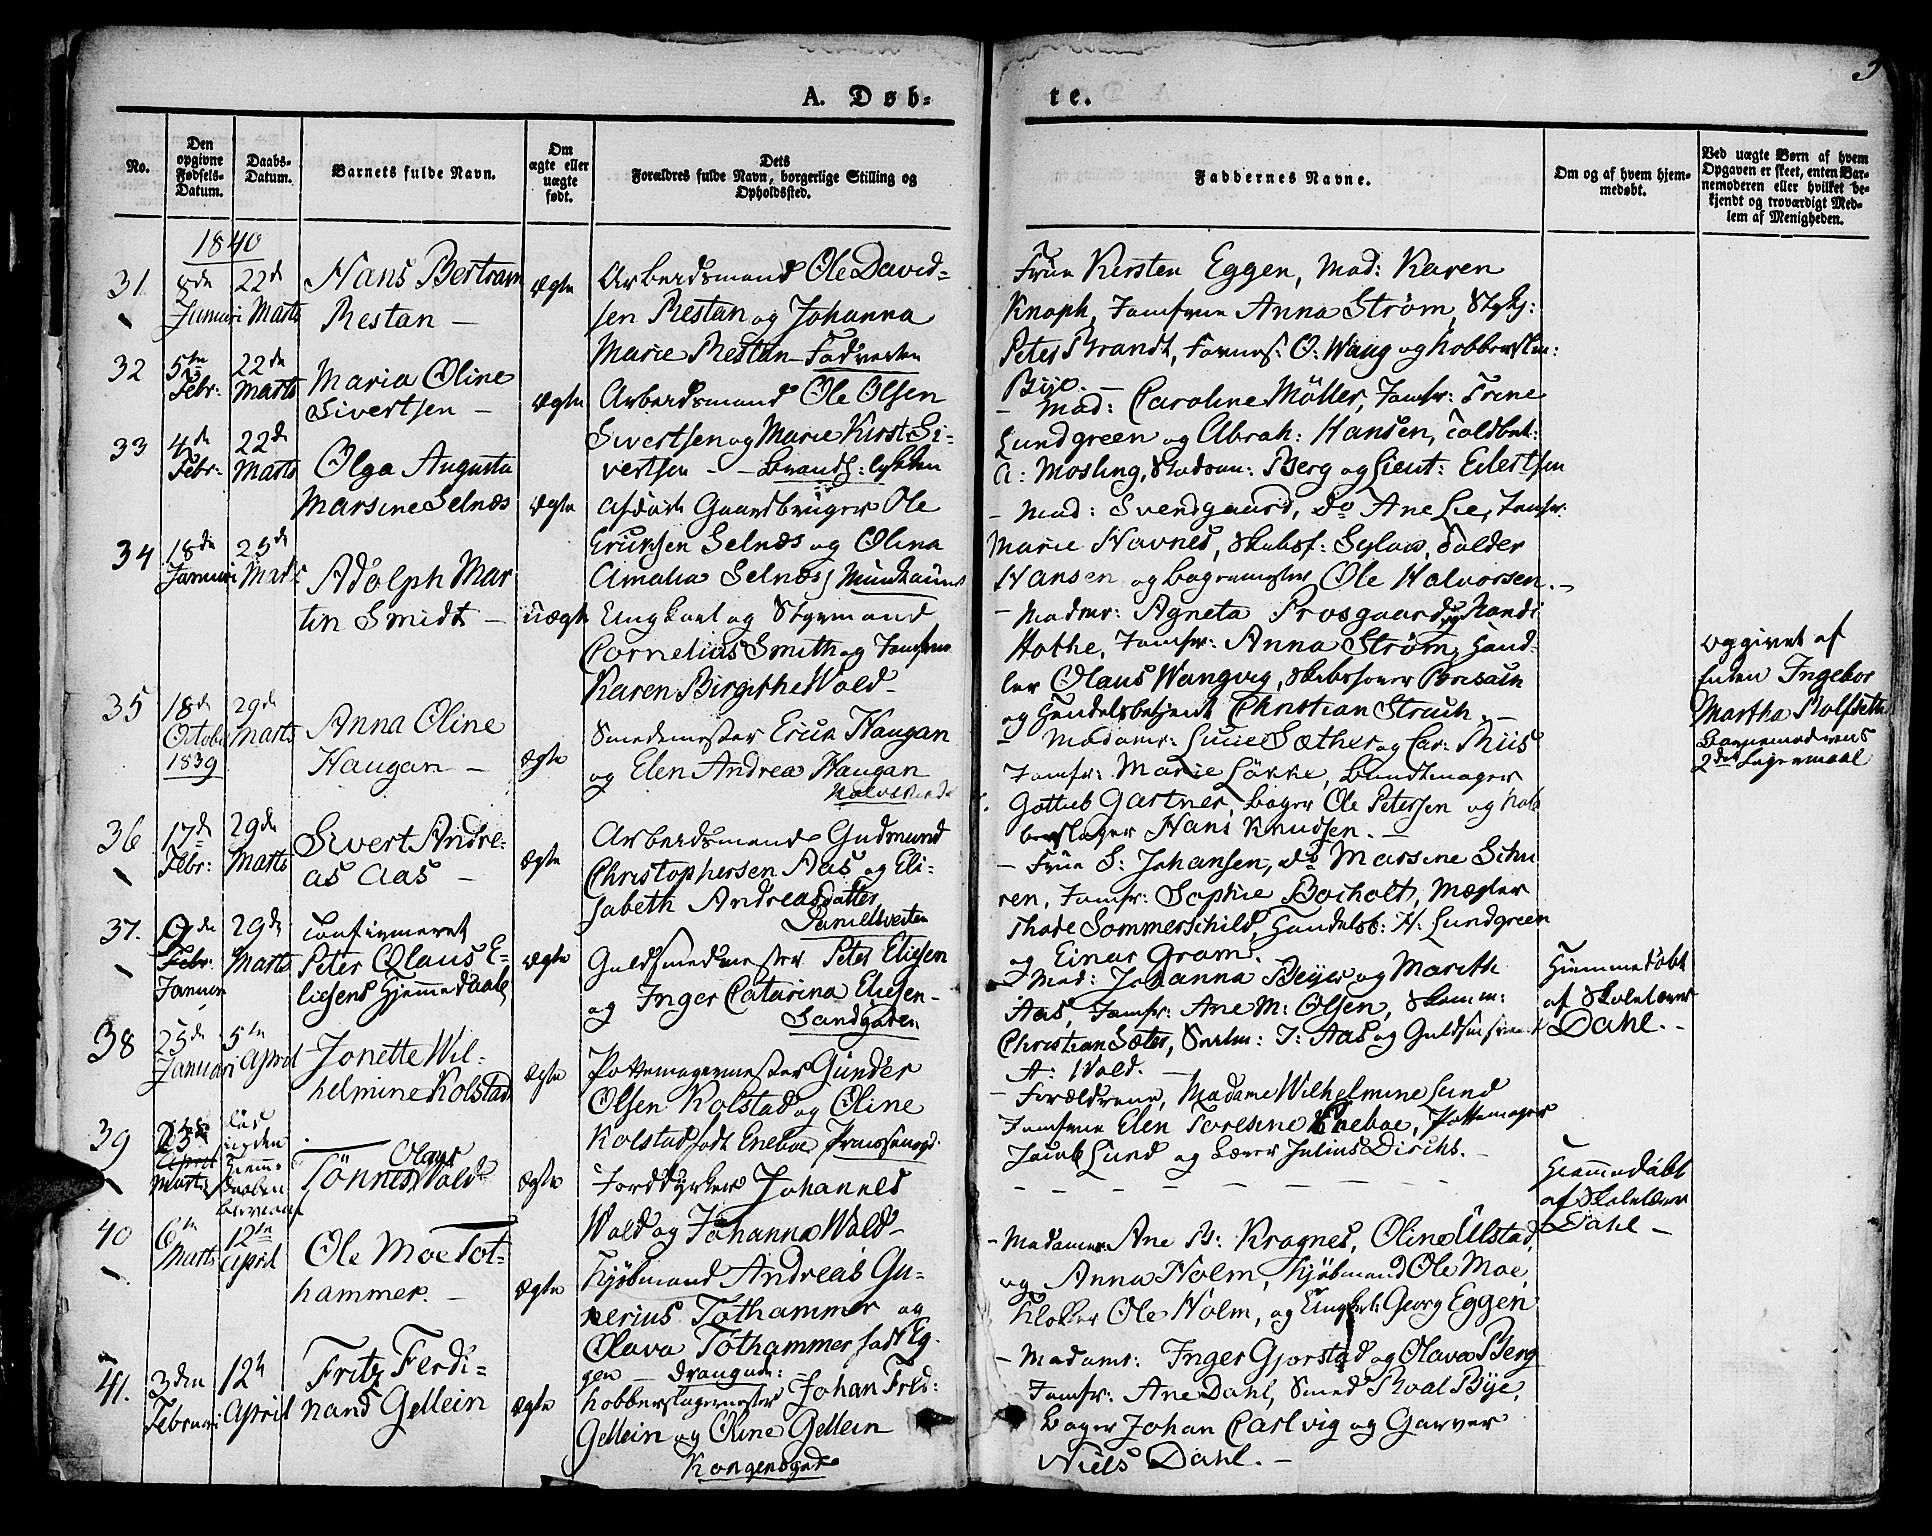 A. Døb-
te.
3
No.
Den opgivne Fødsels-Datum.
Daabs-Datum.
Barnets fulde Navn.
Om ægte eller uægte født.
Dets Forældres fulde Navn, borgerlige Stilling og Opholdssted.
Faddernes Navne.
Om og af hvem hjemmedøbt.
Ved uægte Børn af hvem Opgaven er skeet, enten Barnemoderen eller hvilket bekjendt og troværdigt Medlem af Menigheden.
1840
31
8de Januari
22de Marts
Hans Bertram
Restan –
Ægte
Arbeidsmand Ole David-
sen Restan og Johanna
Marie Restan
Frue Kirsten Eggen, Mad: Karen
Knoph, Jomfrue Anna Strøm,
Peter Brandt,
32
5te Febr:
22de Marts
Maria Oline
Sivertsen –
Ægte
Arbeidsmand Ole Olsen
Sivertsen og Marie Kirst: Si-
vertsen
– Mad: Caroline Möller, Jomfr: Trine
Lundgreen og Abrah: Hansen, Toldbet:
A: Mosling, Berg og Lieut: Eilertsen
33
4de Febr:
22de Marts
Olga Augusta
Marsine Selnæs
Ægte
Gaardbruger Ole
Ericksen Selnæs og Olina
Amalia Selnæs
– Mad: Svendgaard, Do Ane Lie, Jomfr:
Marie Havnes,
Hansen og Bagermester Ole Halvorsen. –
34
18de Januari
25de Marts
Adolph Mar
tin Smidt –
Uægte
Ungkarl og Styrmand
Cornelius Smith og Jomfrue
Karen Birgithe Wold –
– Madmr: Agneta
Hothe, Jomfr: Anna Strøm, Hand-
ler Olaus Wangvig,
og Handelsbetjent Christian Strach. –
Opgivet af
Enken Ingebor
Martha Rolfseth
Barnemoderens
2det Leiermaal
35
18de October 1839
29de Marts
Anna Oline
Haugan –
Ægte
Smedemester Erick Haugan
og Elen Andrea Haugan
Madamr: Lucie Sæther og Car: Riis
Jomfr: Marie Løkke, Bundtmager
Gottlieb Gartner, Bager Ole Petersen og Kob
berslager Hans Knudsen. –
36
17de Febr:
29de Marts
Sivert Andre-
as Aas –
Ægte
Arbeidsmand Gudmund
Christophersen Aas og Eli-
sabeth Andreasdatter
– Frue S: Johansen, do Marsine
Jomfr: Sophie Bocholt, Mægler
Thode Sommerschild, Handelsb: H. Lundgreen
og Einar Gram.
37.
9de Januar
29de Marts
Confirmeret
Peter Olaus E-
liesens Hjemmedaab
Ægte
Guldsmedmester Peter Eliesen
og Inger Catarina Eliesen –
Sandgaden
Mad: Johanna Beyer og Marith
Aas, Jomfr: Ane M: Olsen,
Christian Sæter, J: Aas og
A: Wold.
Hiemmedøbt
af Skolelærer
Dahl. –
38
25de Januari
5te April
Jonette Wil-
helmine Kolstad
Ægte
Pottemagermester Gunder
Olsen Kolstad og Oline
Kolstad født Eneboe
– Forældrene, Madame Wilhelmine Lund
Jomfrue Elen Eneboe, Pottemager
Jacob Lund og Lærer Julius Dirichs. –
39
Marts
Tönnes Olaus Wold
Ægte
Jorddyrker Johannes
Wold og Johanna Wold –
Hiemmedøbt
af Skolelærer
Dahl –
40
6te Marts
12te April
Ole Moe Tot-
hammer. –
Ægte
Kjøbmand Andreas Gu-
nerius Tothammer og
Olava Tothammer født Eg-
gen –
– Madamer Ane B: Kragnes, Oline Ulstad,
og Anna Holm, Kjøbmand Ole Moe,
Klokker Ole Holm, og Ungkrl: Georg Eggen
41.
3den Februari
12te April
Fritz Ferdi-
nand Gellein
Ægte
Kobberslagermester Johan Fred:
Gellein og Oline Gellein
Kongensgade
– Madamr: Inger Gjørstad og Olava Berg
Jomfr: Ane Dahl, Smed Roal Bye,
Bager Johan Carlvig og Garver
Niels Dahl. –